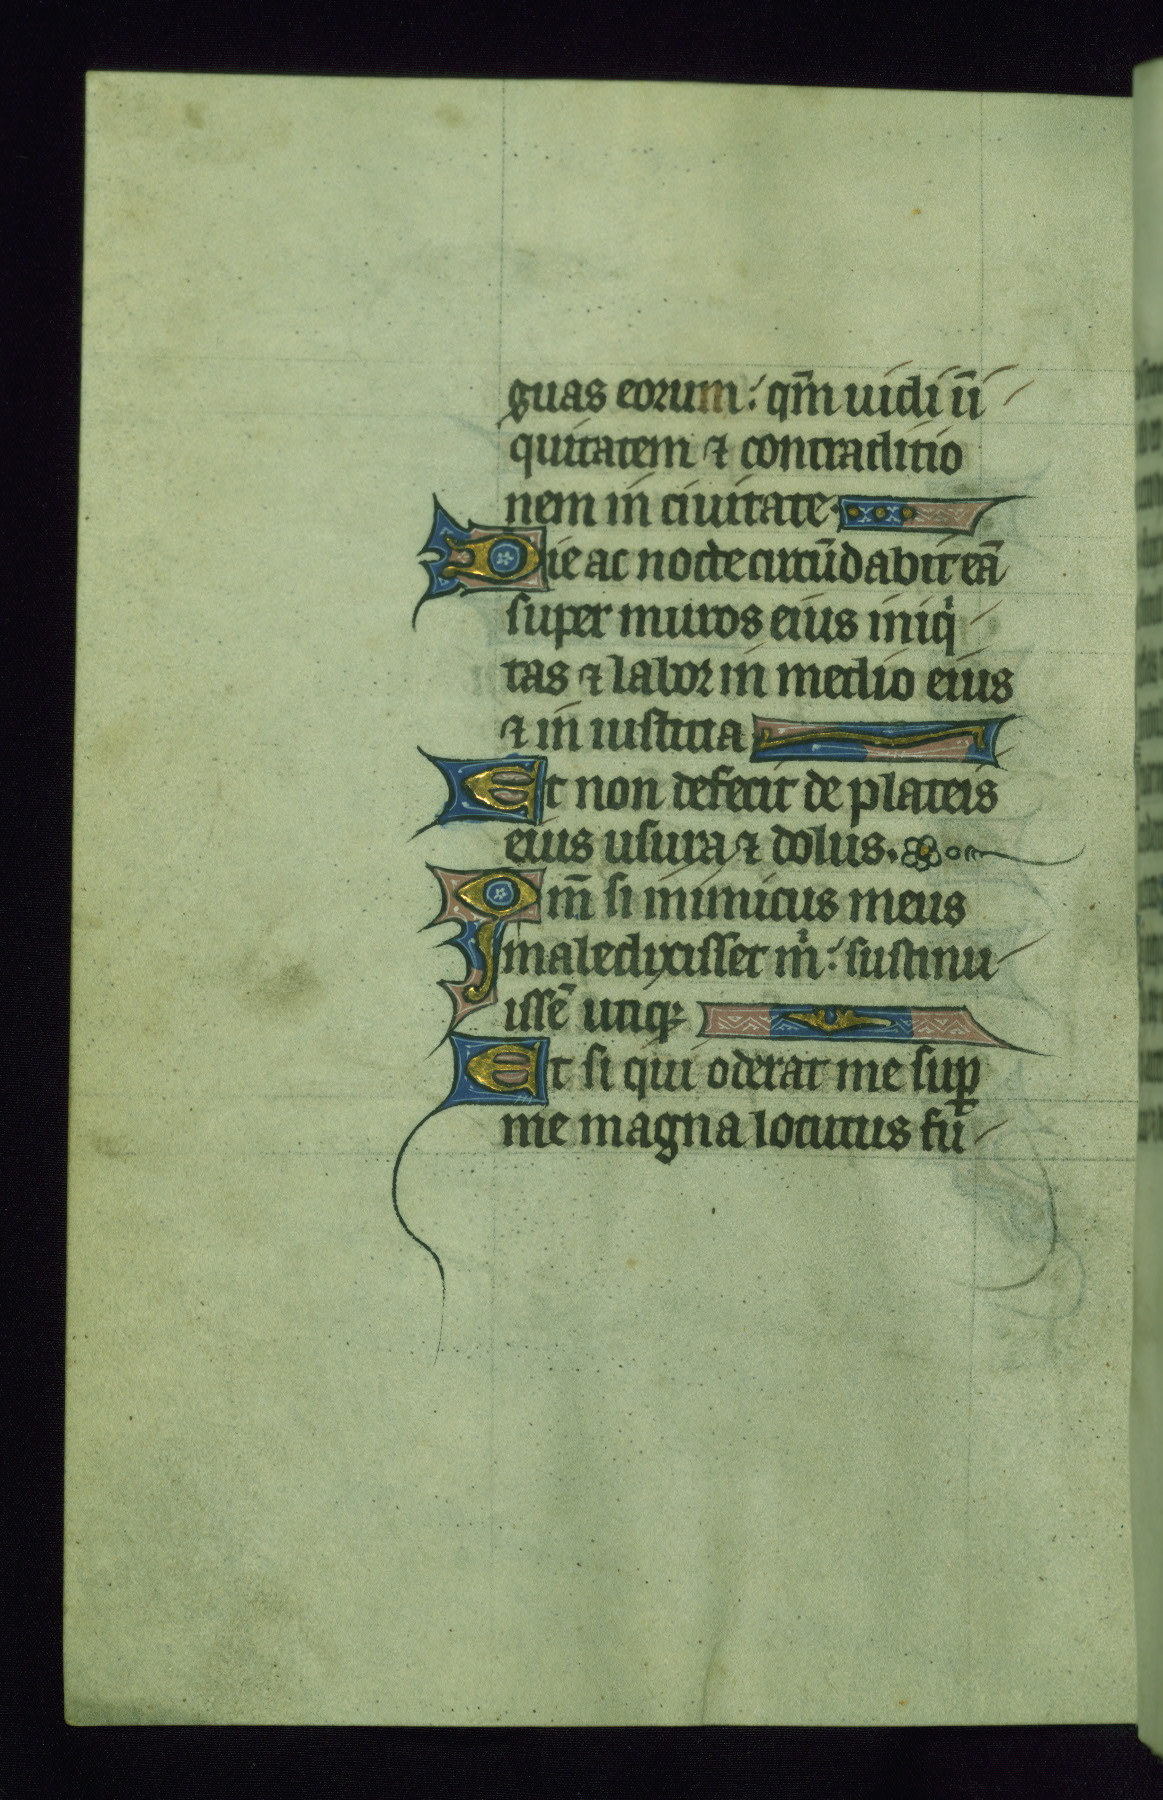 guas eorum: qm̄ uidi īi
quitatem ⁊ contradictio
nem in ciuitate.
Die ac nocte circūdabit eā
super muros eius iniqi
tas ⁊ labor in medio eius
⁊ in iusticia
Et non defecit de plateis
eius usura ⁊ dolus.
Qm̄ si inimicus meus
maledixisset mi: sustinu
issē utiqꝫ
Et si qui oderat me suꝑ
me magna locutus fu